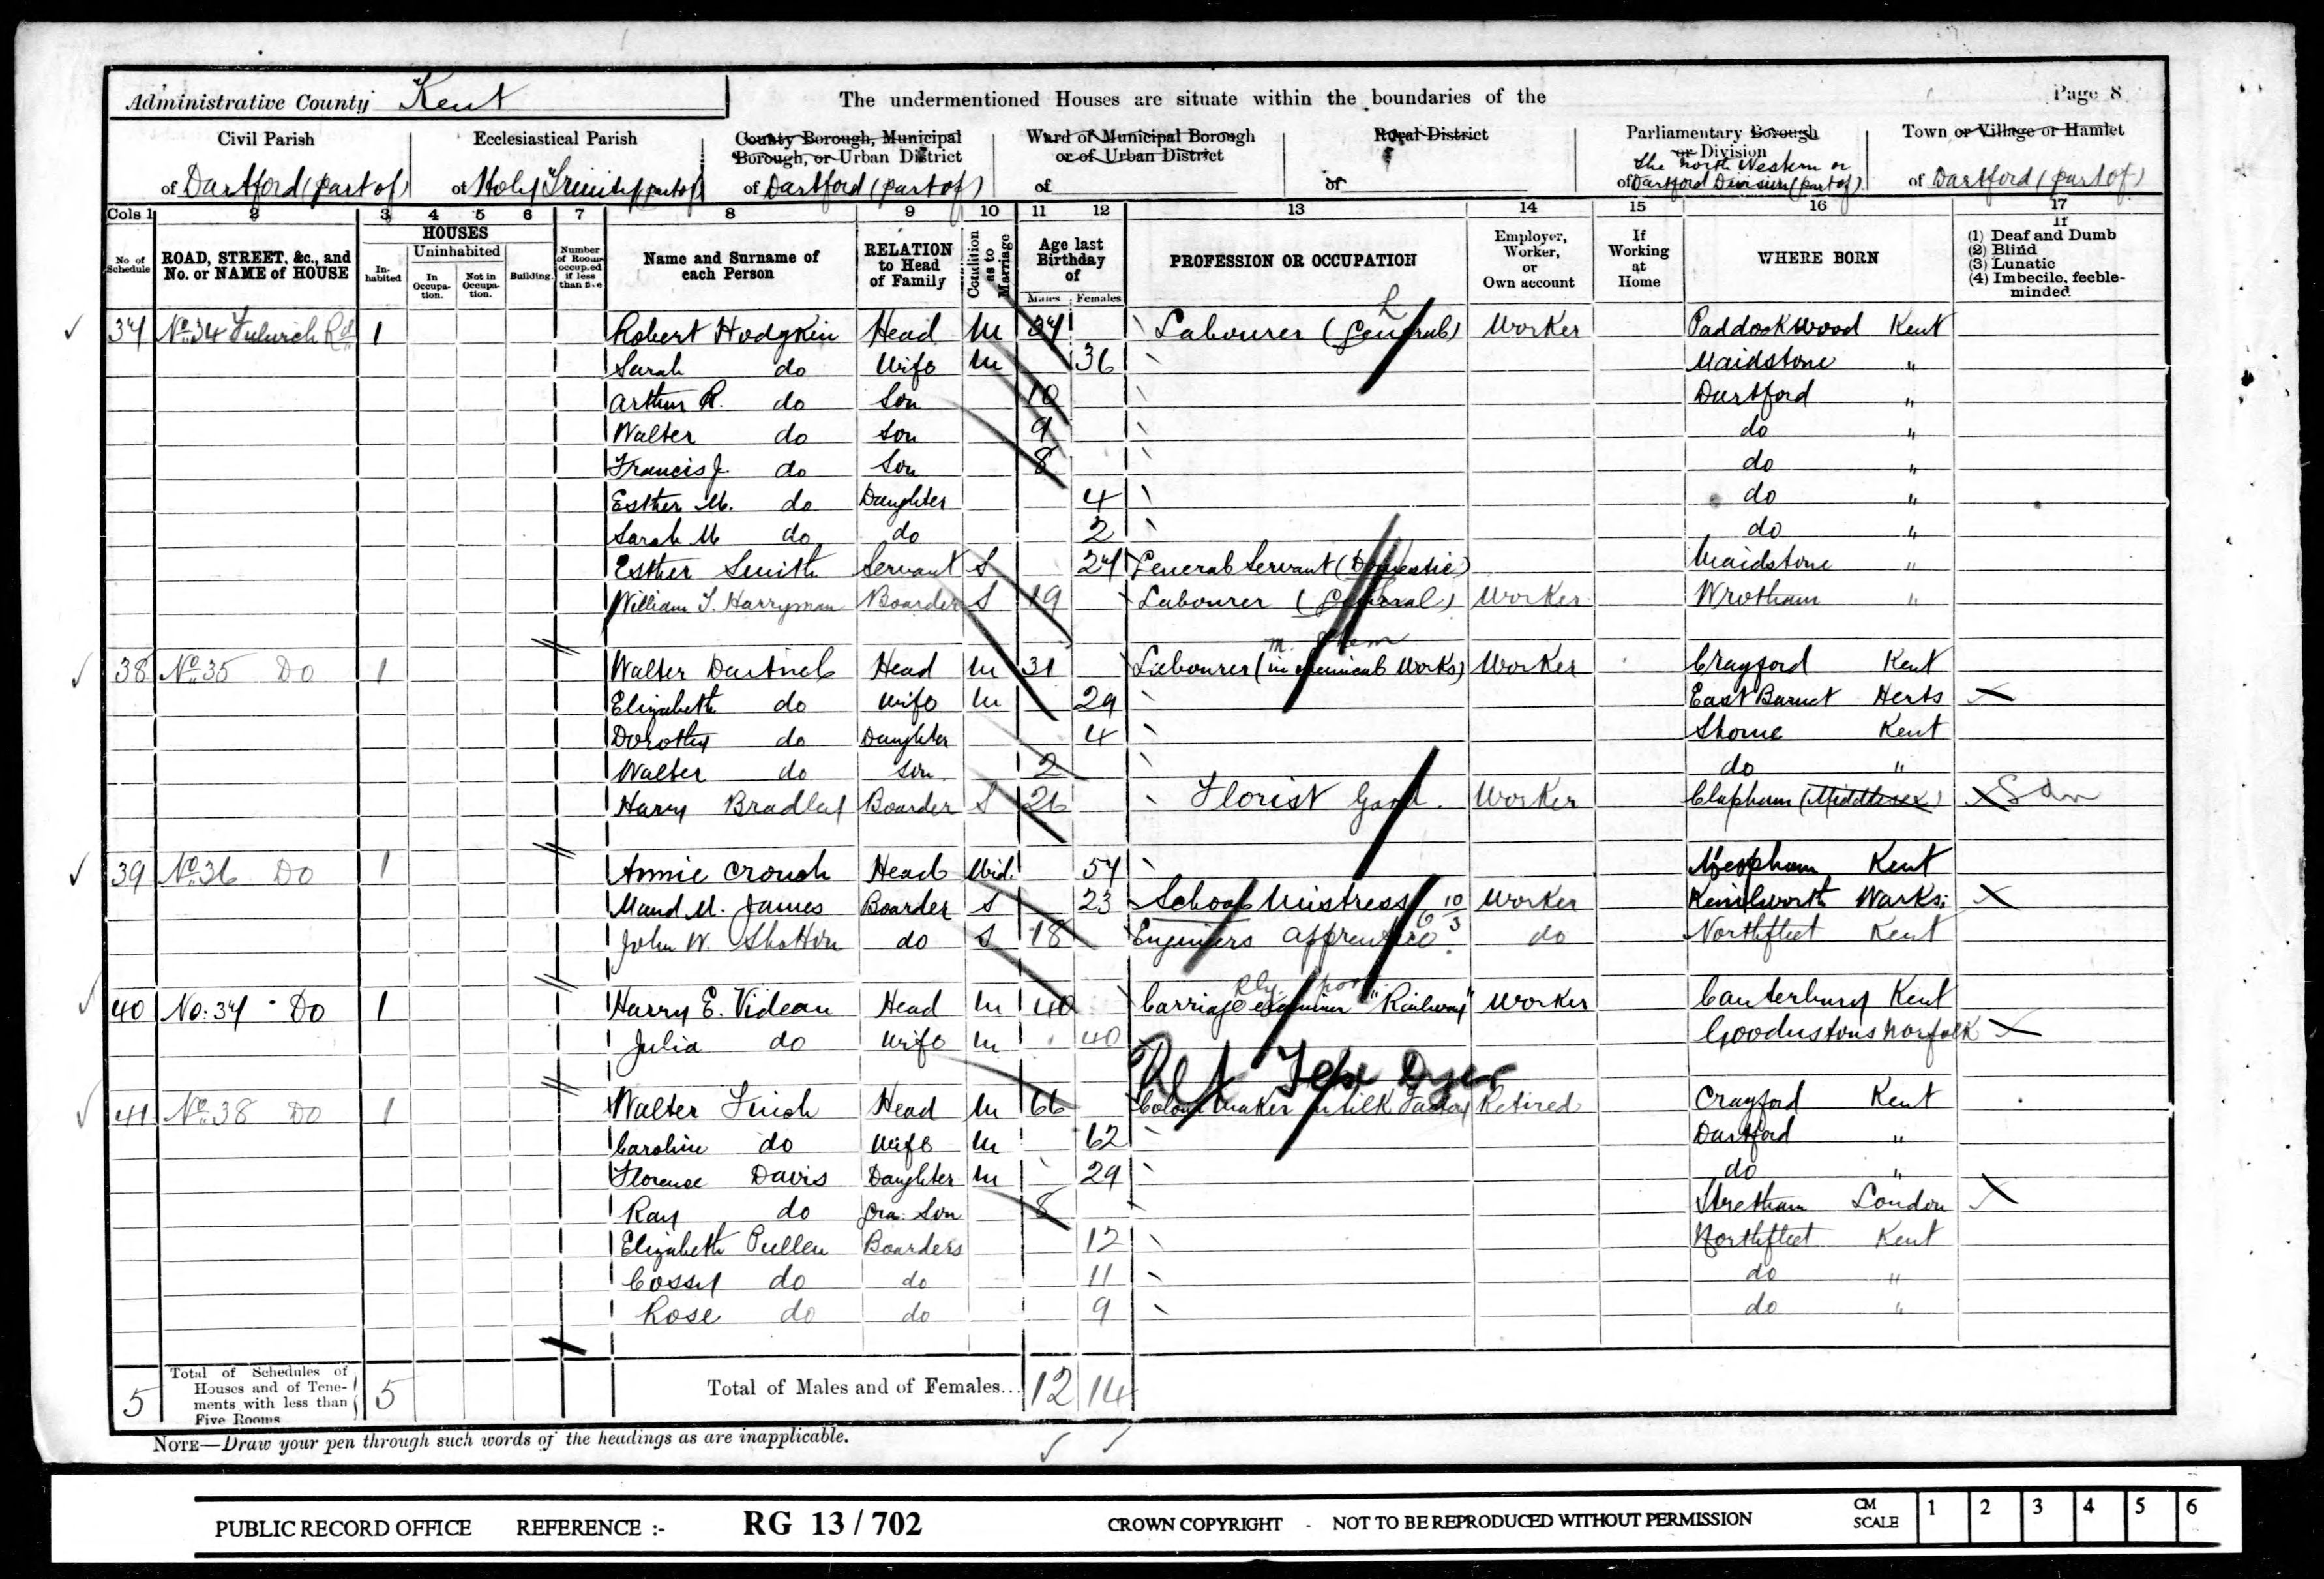 Administrative County Kent
The undermentioned Houses are situate within the boundaries of the
Page 8
Civil Parish
of Dartford (part of)
Ecclesiastical Parish
of Holy Trinity (part of)
County Borough, Municipal Borough, or Urban District
of Dartford (part of)
Ward of Municipal Borough or of Urban District
of
Rural District
of
Parliamentary Borough or Division
of The North Western or Dartford Division (part of)
Town or Village or Hamlet
of Dartford (part of)
Cols 1 2 3 4 5 6 7 8 9 10 11 12 13 14 15 16 17
No. of Schedule
ROAD, STREET, &c., and No. or NAME of HOUSE
HOUSES
Inhabited
Uninhabited
In Occupation.
Not in Occupation.
Building.
Number of Rooms occupied if less than five
Name and Surname of each Person
RELATION to Head of Family
Condition as to Marriage
Age last Birthday of
Males Females
PROFESSION OR OCCUPATION
Employer, Worker, or Own account
If Working at Home
WHERE BORN
If (1) Deaf and Dumb (2) Blind (3) Lunatic (4) Imbecile, feeble-minded
37 No. 34 Fulwich Rd 1 Robert Hodgkin Head M 37 Labourer (General) Worker Paddockwood Kent
Sarah do Wife M 36 Maidstone "
Arthur R. do Son 10 Dartford "
Walter do Son 9 do "
Francis J. do Son 8 do "
Esther M. do Daughter 4 do "
Sarah M do do 2 do "
Esther Smith Servant S 27 General Servant (Domestic) Maidstone "
William T. Harryman Boarder S 19 Labourer (General) Worker Wrotham "
38 No. 35 Do 1 Walter Dartnel Head M 31 Labourer (in chemical Works) Worker Crayford Kent
Elizabeth do Wife M 29 East Barnet Herts
Dorothy do Daughter 4 Shorne Kent
Walter do Son 2 do "
Harry Bradley Boarder S 26 Florist Gard. Worker Clapham (Middlesex)
39 No. 36 Do 1 Annie Crouch Head Wid. 57 Meopham Kent
Maud M. James Boarder S 23 School Mistress 10/3 Worker Kenilworth Warks:
John W. do S 18 Engineers apprentice do Northfleet Kent
40 No: 37 Do 1 Harry E. Videan Head M 40 Carriage examiner "Railway" Worker Canterbury Kent
Julia do Wife M 40 Norfolk
Ret Dyer
41 No. 38 Do 1 Walter Finch Head M 66 Colour maker in Silk Factory Retired Crayford Kent
Caroline do Wife M 62 Dartford "
Florence Davis Daughter M 29 do "
Ray do Gra. Son 8 Stretham London
Elizabeth Pullen Boarders 12 Northfleet Kent
Cossy do do 11 do "
Rose do do 9 do "
5 Total of Schedules of Houses and of Tenements with less than Five Rooms 5
Total of Males and of Females... 12 14
NOTE—Draw your pen through such words of the headings as are inapplicable.
PUBLIC RECORD OFFICE REFERENCE :- RG 13 / 702 CROWN COPYRIGHT - NOT TO BE REPRODUCED WITHOUT PERMISSION CM SCALE 1 2 3 4 5 6